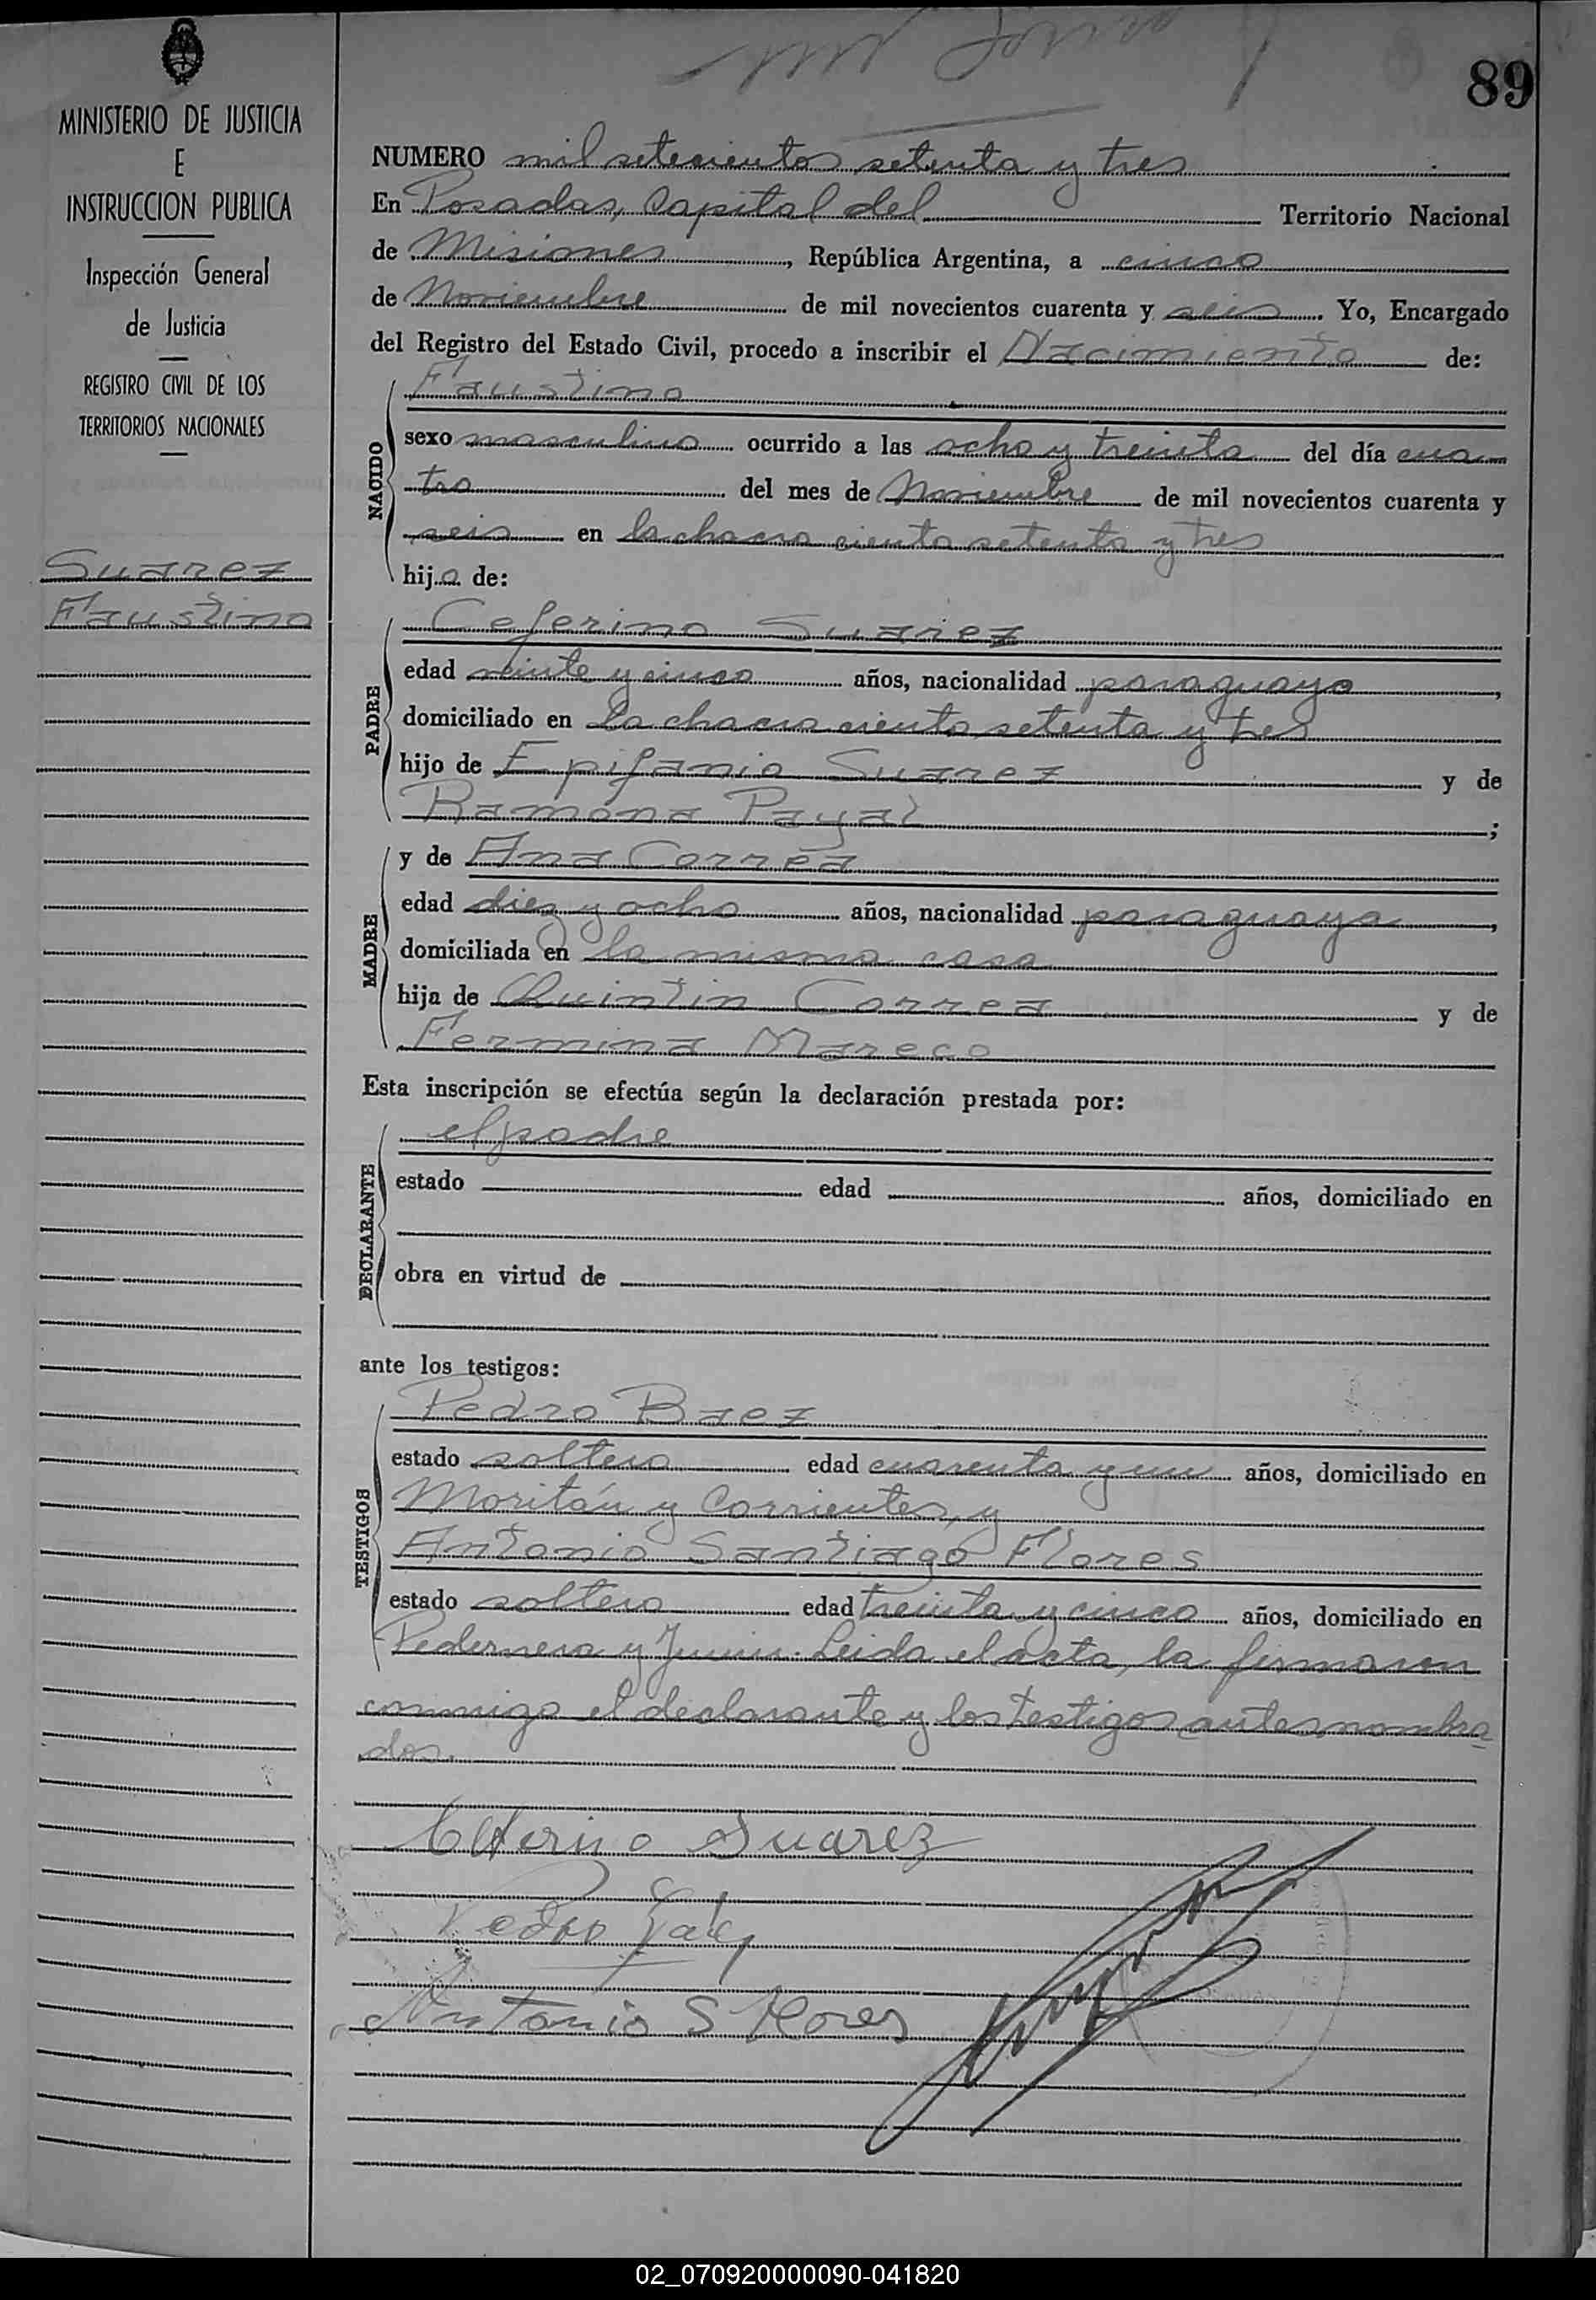 89
MINISTERIO DE JUSTICIA
E
INSTRUCCION PUBLICA
Inspección General
de Justicia
REGISTRO CIVIL DE LOS
TERRITORIOS NACIONALES
Suarez
Faustino
NUMERO mil setecientos setenta y tres
En Posadas, Capital del Territorio Nacional
de Misiones, República Argentina, a cinco
de Noviembre de mil novecientos cuarenta y seis. Yo, Encargado
del Registro del Estado Civil, procedo a inscribir el Nacimiento de:
NACIDO
Faustino
sexo masculino ocurrido a las ocho y treinta del día cua
tro del mes de Noviembre de mil novecientos cuarenta y
seis en la chacra ciento setenta y tres
hijo de:
PADRE
Ceferino Suarez
edad veinte y cinco años, nacionalidad paraguayo,
domiciliado en la chacra ciento setenta y tres
hijo de Epifanio Suarez y de
Ramona Payal;
MADRE
y de Ana Correa
edad diez y ocho años, nacionalidad paraguaya,
domiciliada en la misma casa
hija de Quintin Correa y de
Fermina Mareco
Esta inscripción se efectúa según la declaración prestada por:
DECLARANTE
el padre
estado edad años, domiciliado en
obra en virtud de
ante los testigos:
TESTIGOS
Pedro Baez
estado soltero edad cuarenta y un años, domiciliado en
Moritán y Corrientes, y
Antonio Santiago Flores
estado soltero edad treinta y cinco años, domiciliado en
Pedernera y Junin. Leida el acta, la firmaron
conmigo el declarante y los testigos antes nombra
dos.
Ceferino Suarez
Pedro Baez
Antonio S Flores
02_070920000090-041820